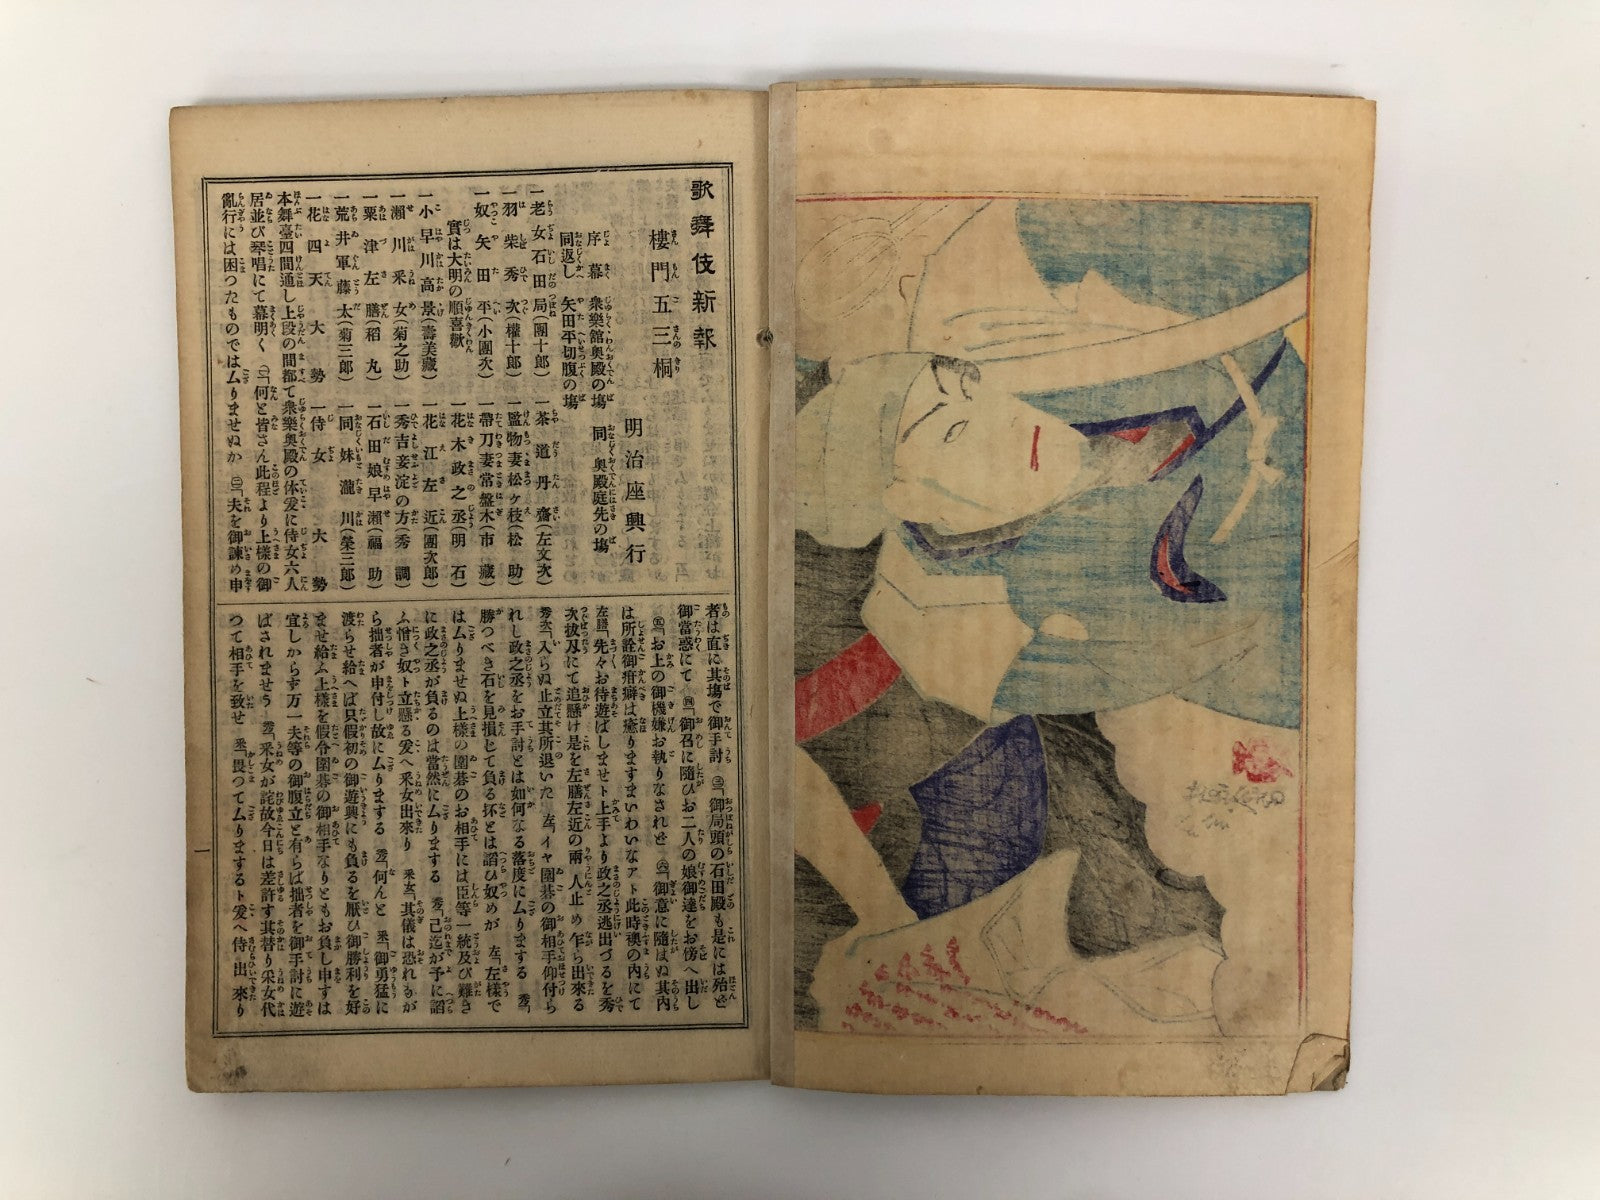 歌舞伎新報
樓門五三桐
明治座興行
序幕 衆樂館奥殿の塲
同 奥殿庭先の塲
同返し 矢田平切腹の塲
一老女石田局(團十郎)
一羽柴秀次(權十郎)
一奴矢田平(小團次)
實は大明の順喜歡
一小早川高景(壽美藏)
一瀬川采女(菊之助)
一粟津左膳(稻丸)
一荒井軍藤太(菊三郎)
一花四天 大勢
一茶道丹齋(左文次)
一監物妻松ヶ枝(松助)
一帶刀妻常盤木(市藏)
一花木政之丞(明石)
一花江左近(團次郎)
一秀吉妾淀の方(秀調)
一石田娘早瀬(福助)
一同妹瀧川(榮三郎)
一侍女 大勢
本舞臺四間通し上段の間都て衆樂奥殿の体爰に侍女六人
居並び琴唱にて幕明く ㊀「何と皆さん此程より上樣の御
亂行には困つたものではムりませぬか ㊁「夫を御諫め申
者は直に其塲で御手討 ㊂「御局頭の石田殿も是には殆ど
御當惑にて ㊃「御召に隨ひお二人の娘御達をお傍へ出し
㊄「お上の御機嫌お執りなされど ㊅「御意に隨はぬ其内
は所詮御疳癖は癒りますまいわいなアト此時襖の内にて
左膳「先々お待遊ばしませト上手より政之丞逃出づるを秀
次拔刀にて追懸け是を左膳左近の兩人止め乍ら出來る
秀次「入らぬ止立其所退いた 左「イヤ圍碁の御相手仰付ら
れし政之丞をお手討とは如何なる落度にムりまする 秀「
勝つべき石を見損じて負る抔とは謟ひ奴めが 左「左樣で
はムりませぬ上樣の圍碁のお相手には臣等一統及び難き
に政之丞が負るのは當然にムりまする 秀「己迄が予に謟
ふ憎き奴ト立懸る爰へ采女出來り 采女「其儀は恐れもが
ら拙者が申付し故にムりまする 秀「何んと 采「御勇猛に
渡らせ給へば只假初の御遊興にも負るを厭ひ御勝利を好
ませ給ふ上樣を假令圍碁の御相手なりともお負し申すは
宜しからず万一夫等の御腹立と有らば拙者を御手討に遊
ばされませう 秀「采女が詫故今日は差許す其替り采女代
つて相手を致せ 采「畏つてムりまするト爰へ侍女出來り
一